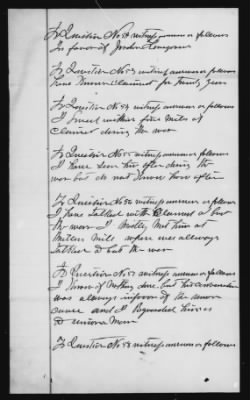 To Question No 2 witness answers as follows
In favor of
To Question No 3 witness answers as follows
have known claimant for twenty years
To Question No 4 witness answers as follows
I lived within five miles of
claimant during the war
To Question No 5 witness answers as follows
I have seen him often during the
war but do not know how often
To Question No 56 witness answers as follows
I have talked with Claimant a bout
the war I mostly Met him at
Mill where was allways
talked a bout the war
To Question No 57 witness answers as follows
I know of nothing done but his conversation
was always infavor of the union
cause and I Regarded him as
a union Man
To Question No 58 witness answers as follows